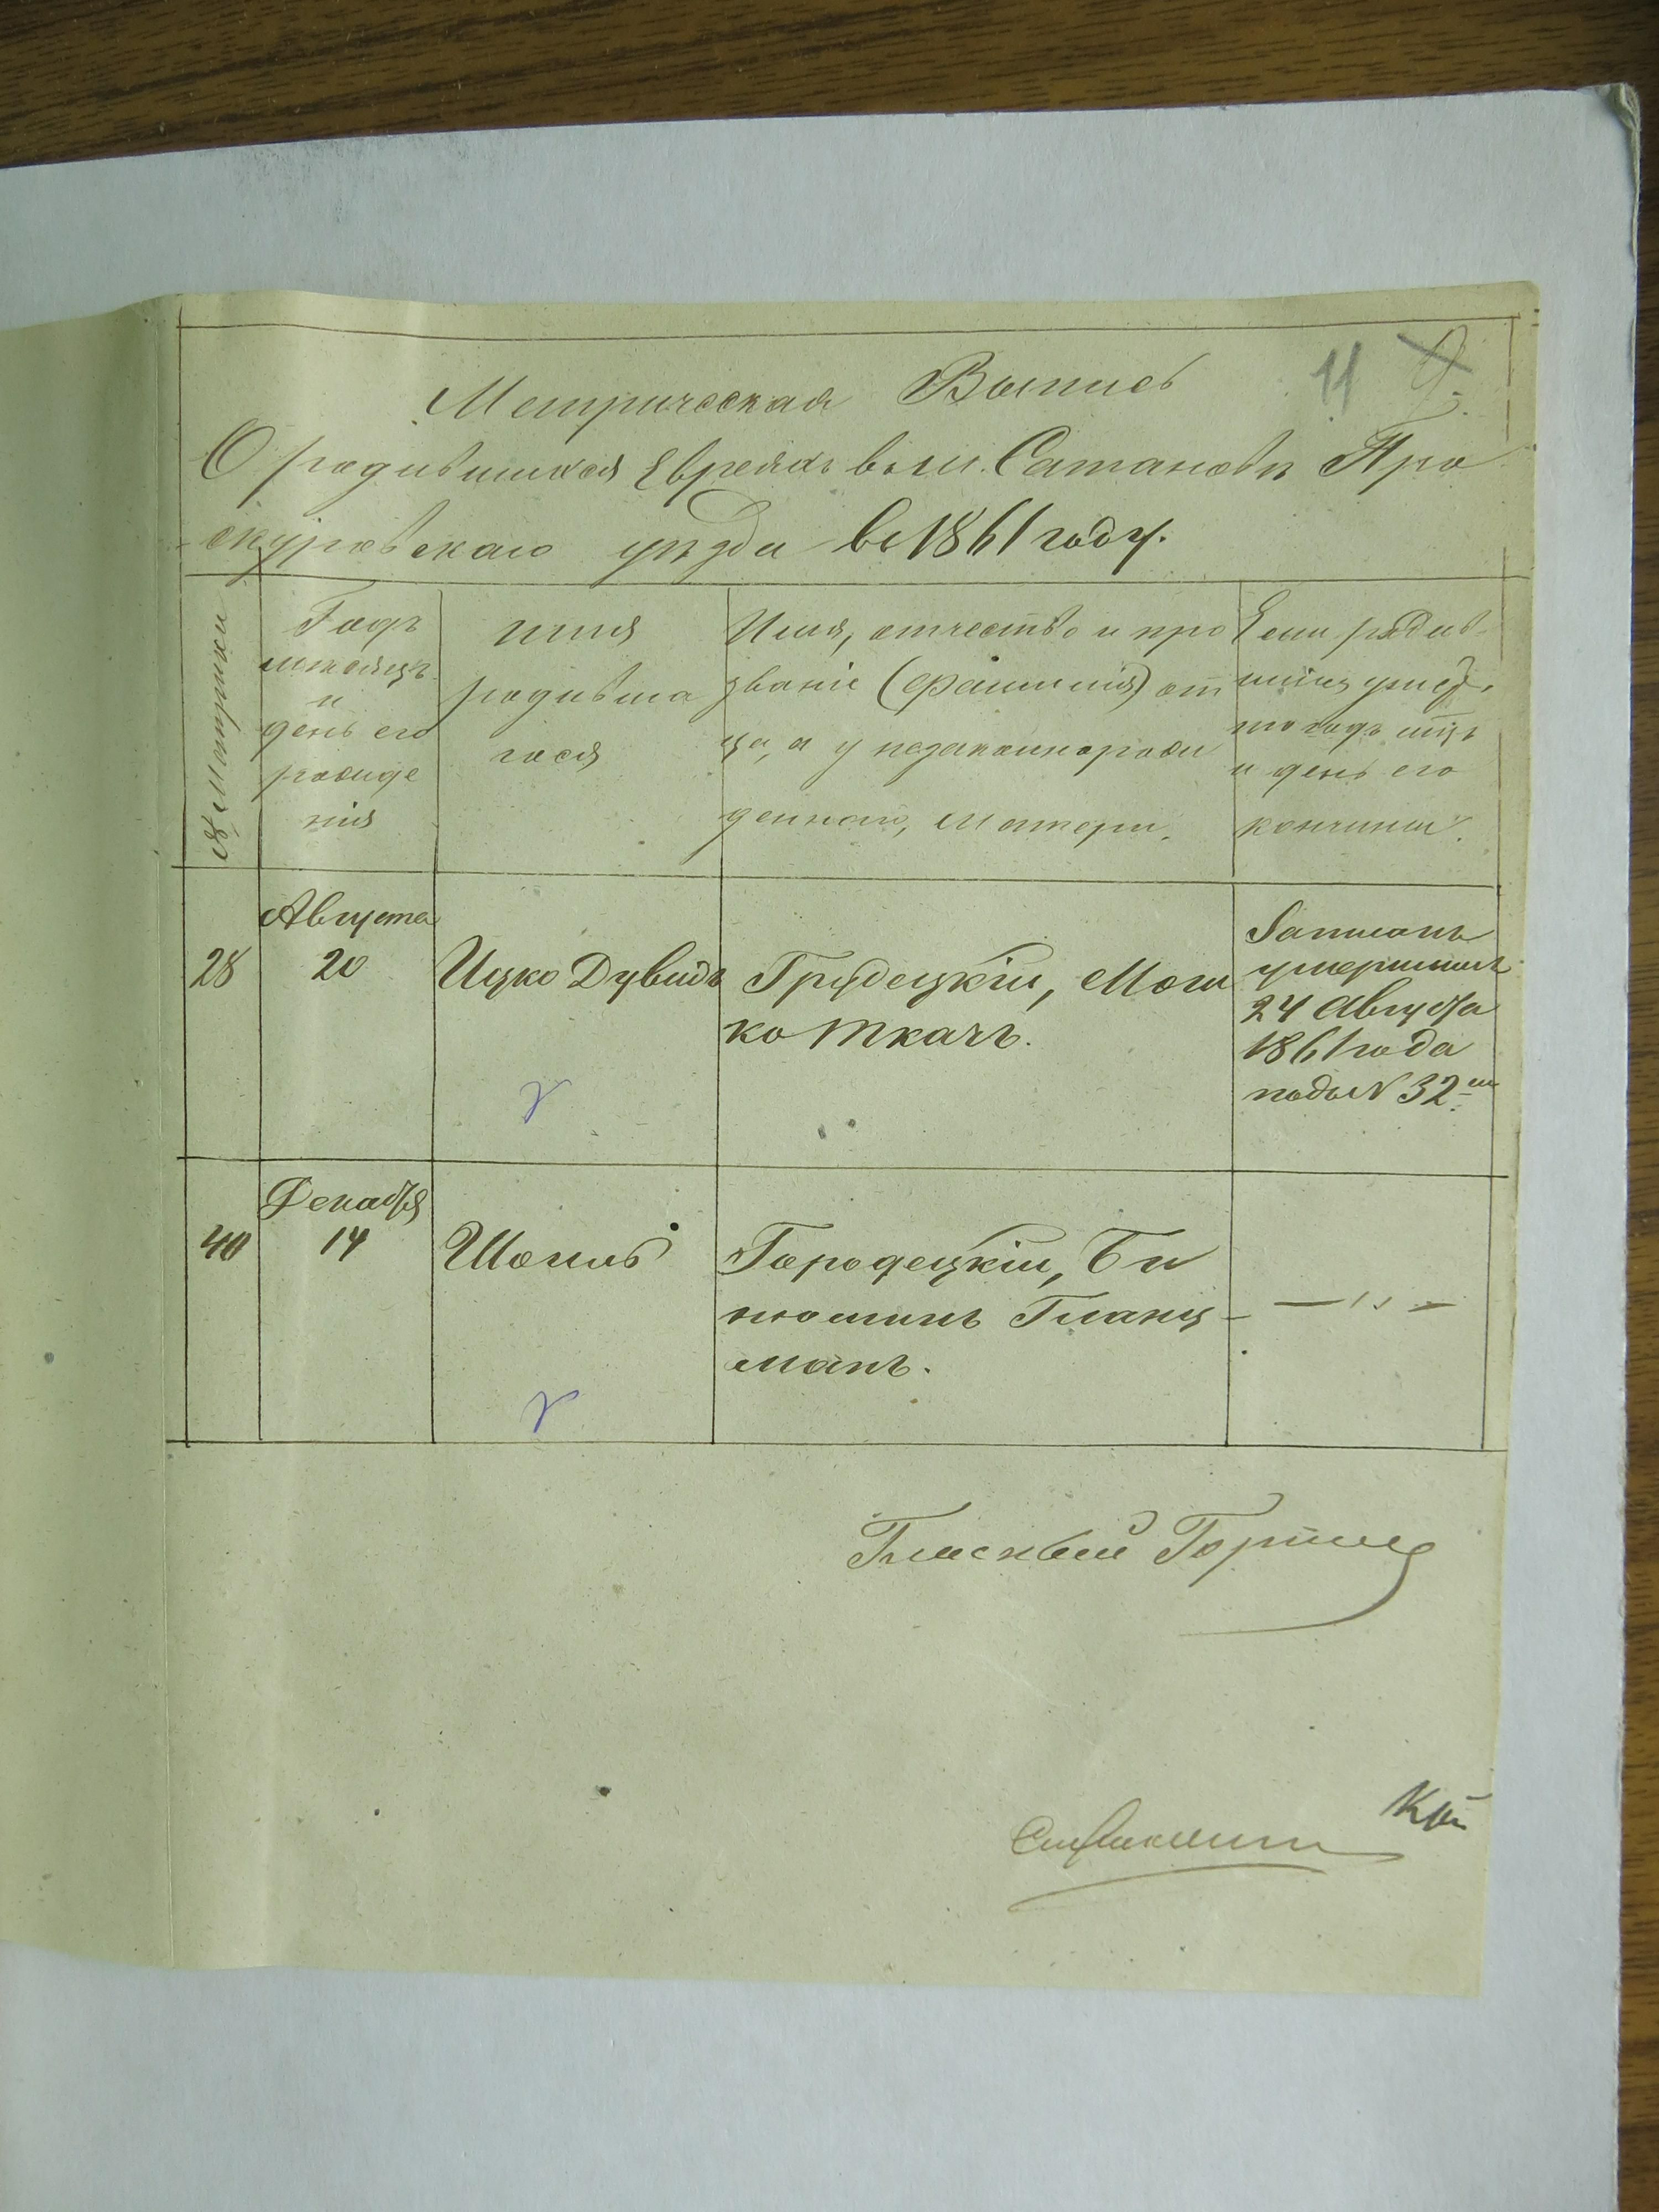 11 9.
Метрическая Выпись
О родившихся Евреяхъ въ м. Сатановѣ Про
скуровскаго уѣзда въ 1861 году.
№ Метрики
Годъ
мѣсяцъ
и
день его
рожде
нія
имя
родивша
гося
Имя, отчество и про
званіе (фамилія) от
ца, а у незаконнорож
деннаго, Матери.
Если родив-
шійся умер,
то годъ мцъ
и день его
кончины.
28
Августа
20
Ицко Дувидъ
Грудецкій, Мош
ко Ткачъ.
Записанъ
умершимъ
24 Августа
1861 года
подъ N 32 м
40
Декабря
14
Шоиль
Городецкій, Би
нюминъ Гланц-
манъ.
— " —
Гласный